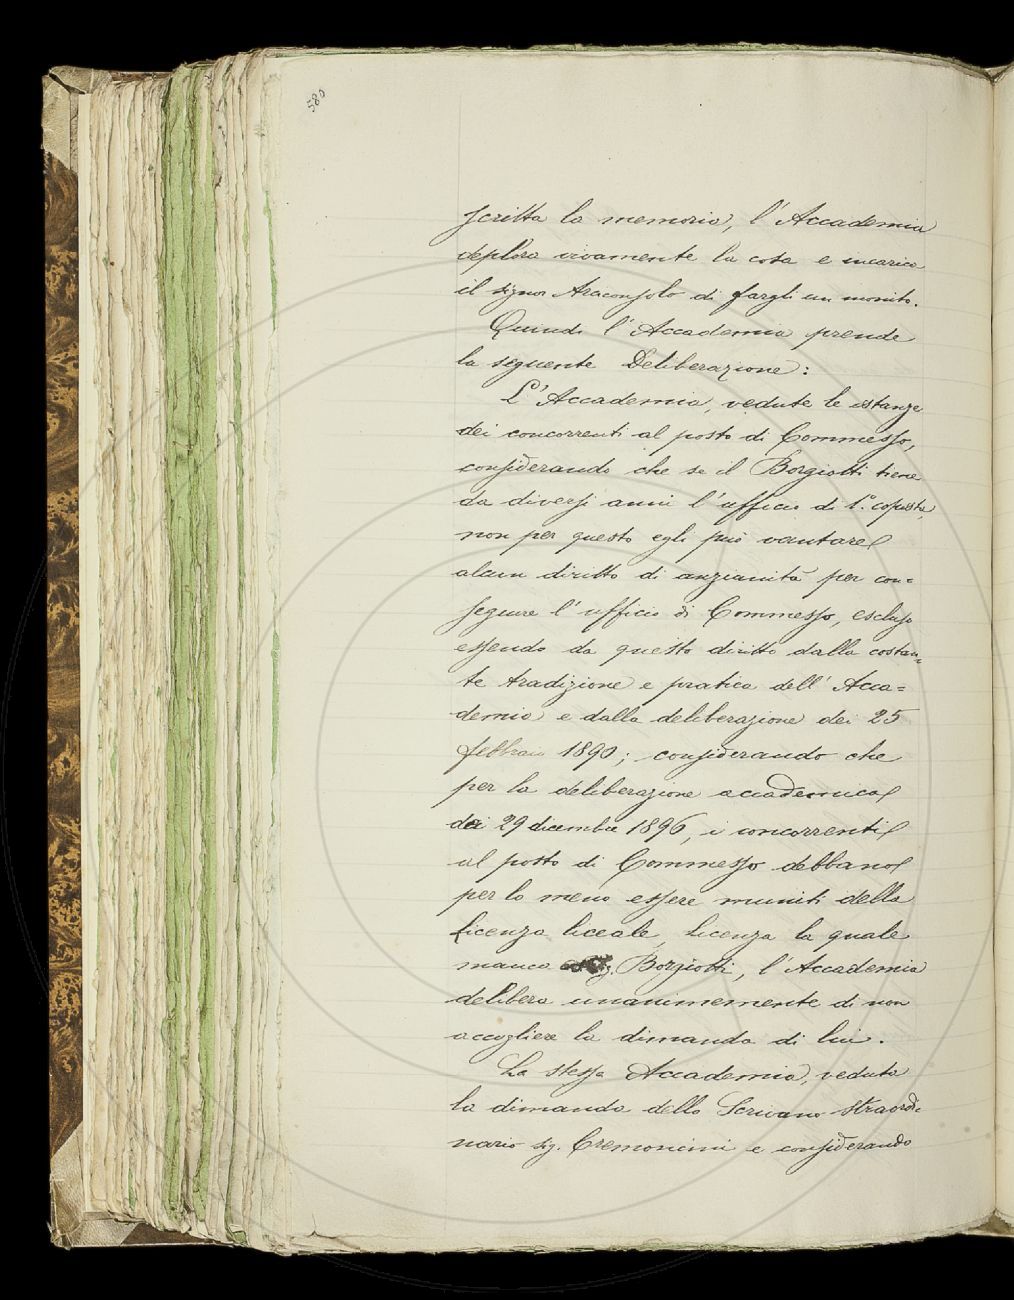 580
scritta la memoria, l'Accademia
deplora vivamente la cosa e incarica
il signor Arciconsolo di fargli un monito.
Quindi l'Accademia prende
la seguente Deliberazione:
L'Accademia, vedute le istanze
dei concorrenti al posto di Commesso,
considerando che se il Borgiotti tiene
da diversi anni l'ufficio di 1.º copista,
non per questo egli può vantare
alcun diritto di anzianità per con=
seguire l'ufficio di Commesso, escluso
essendo da questo diritto dalla costan=
te tradizione e pratica dell'Acca=
demia e dalla deliberazione dei 25
febbraio 1890; considerando che
per la deliberazione accademica
dei 29 dicembre 1896, i concorrenti
al posto di Commesso debbano
per lo meno essere muniti della
licenza liceale, licenza la quale
manca Borgiotti, l'Accademia
delibera unanimemente di non
accogliere la dimanda di lui.
La stessa Accademia, veduta
la dimanda dello Scrivano straordi=
nario sig. Cremoncini e considerando